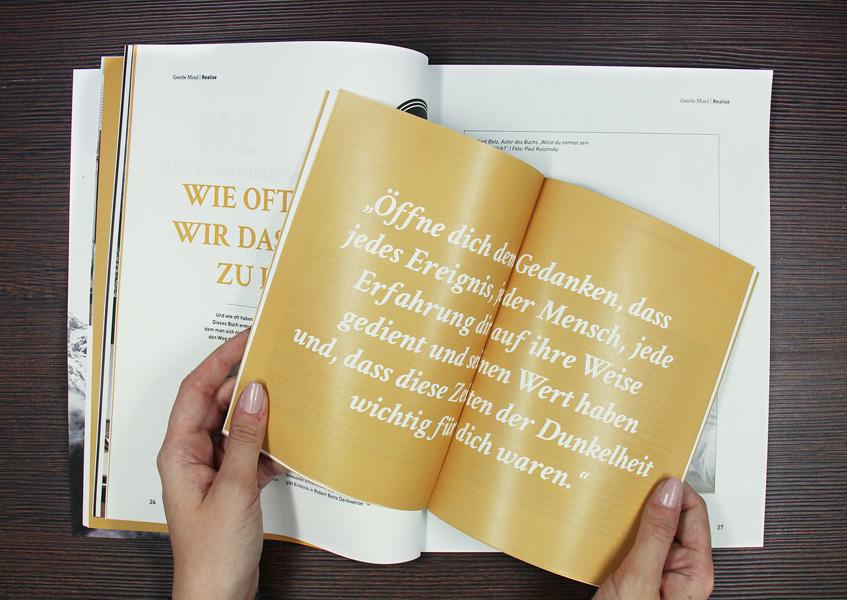 Gentle Mind | Realise
WIE OFT
WIR DAS
ZU
Und wie oft
Dieses Buch
dem man sich
den Weg
26
Gentle Mind | Realise
Betz, Autor des Buchs „Willst du normal sein
Foto: Paul Kuczinsky
„Öffne dich den Gedanken, dass
jedes Ereignis, jeder Mensch, jede
Erfahrung dir auf ihre Weise
gedient und seinen Wert haben
und, dass diese Zeiten der Dunkelheit
wichtig für dich waren.“
Einblick in Robert Betz Denkweise.
27